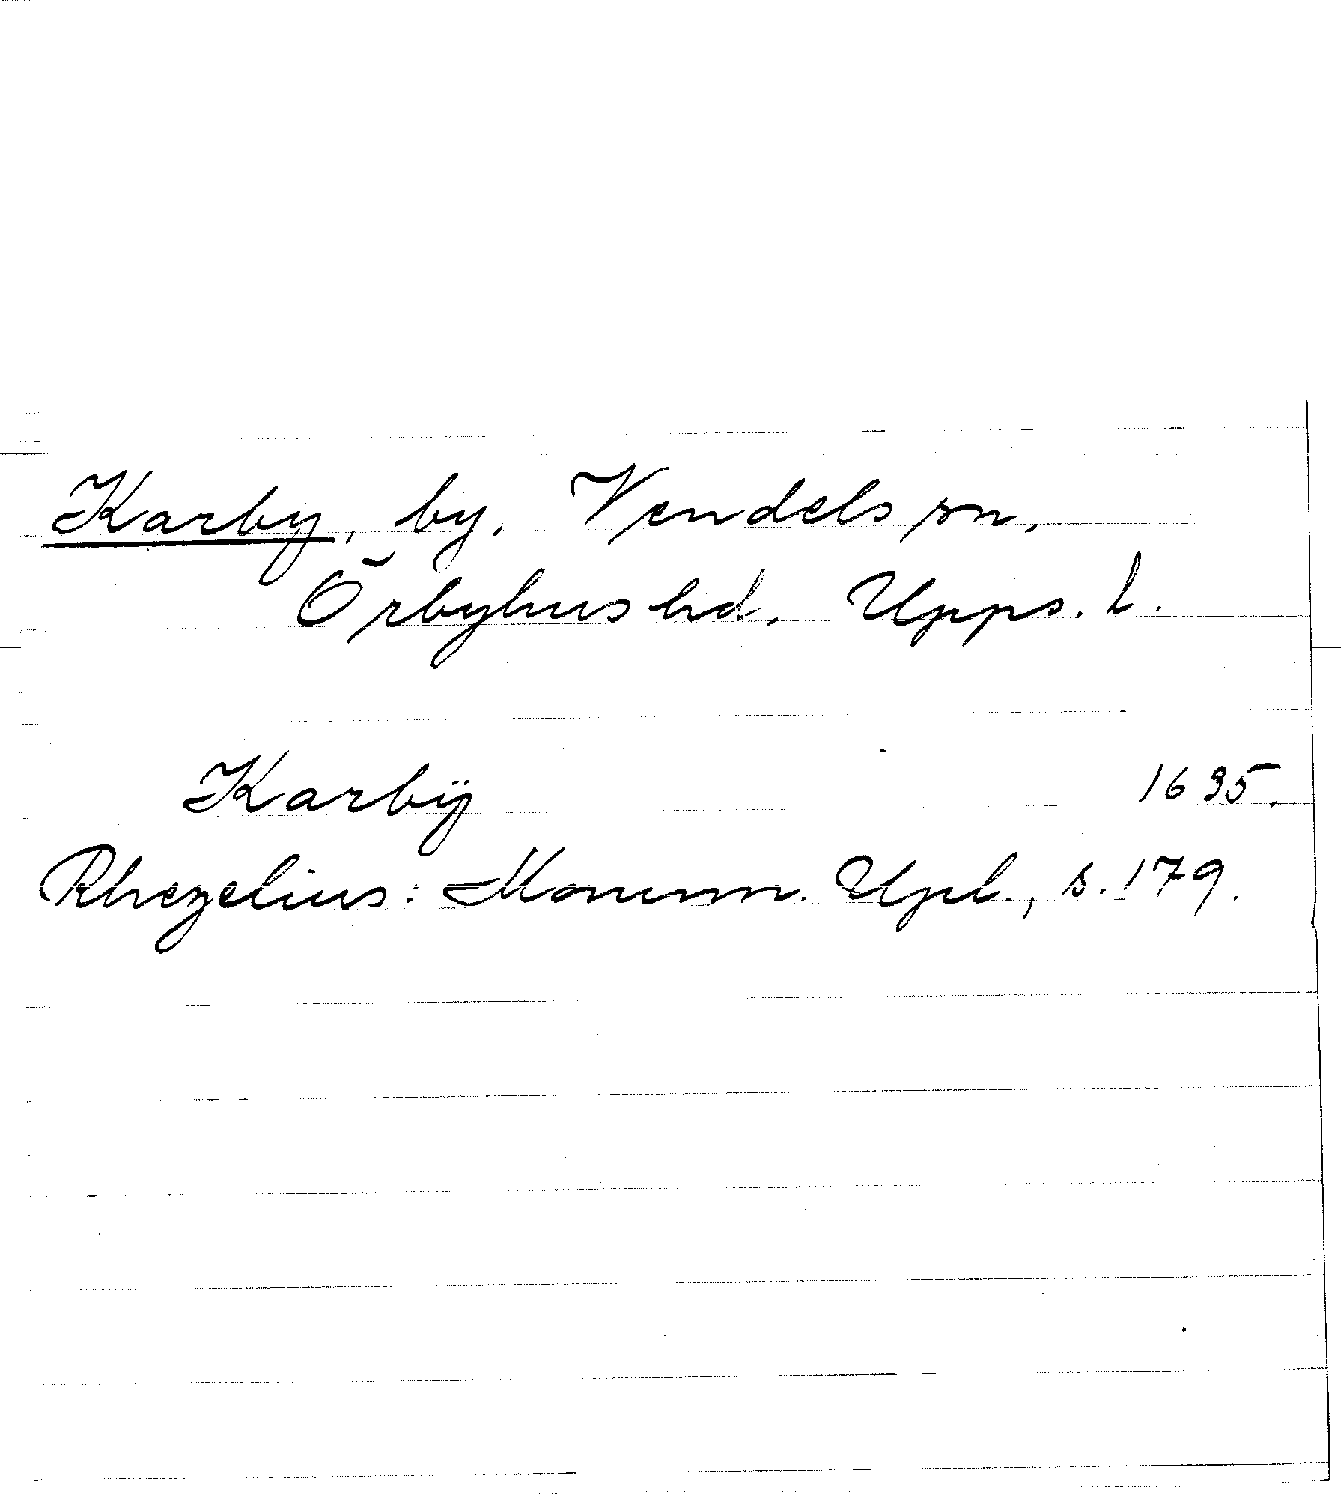 Karby, by, Vendels sn,
Örbyhus hd. Upps. l.
Karbÿ 1635.
Rhezelius: Monum. Upl., s. 179.